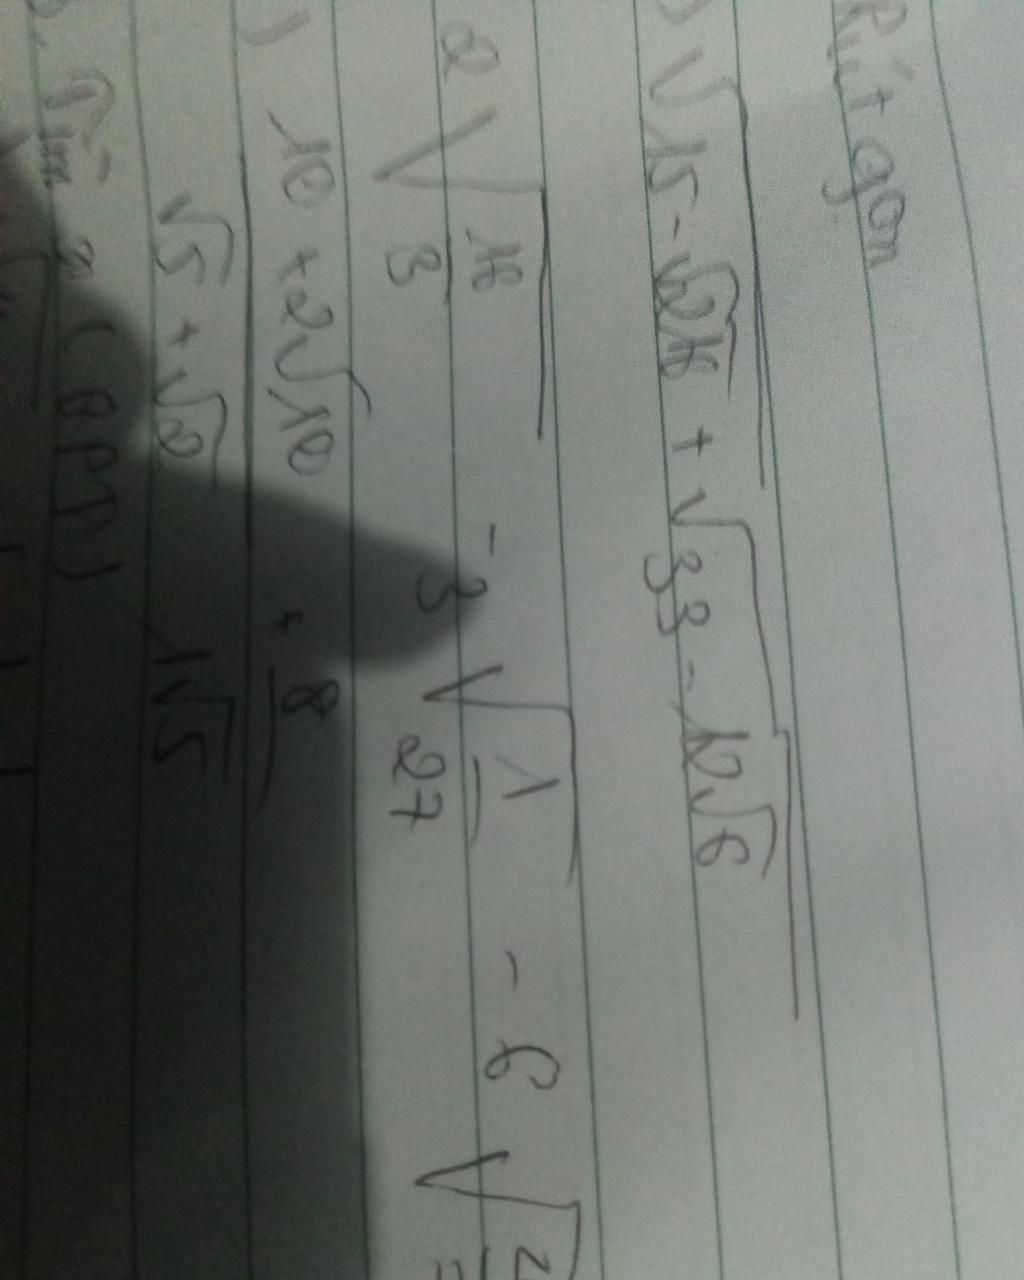 Rút gọn
) √15-√216 + √33-12√6
2√16/3 - 3√1/27 - 6√
) 10 + 2√10 / √5 + √2 + 8 / 1√5
Tìm x (GPT)